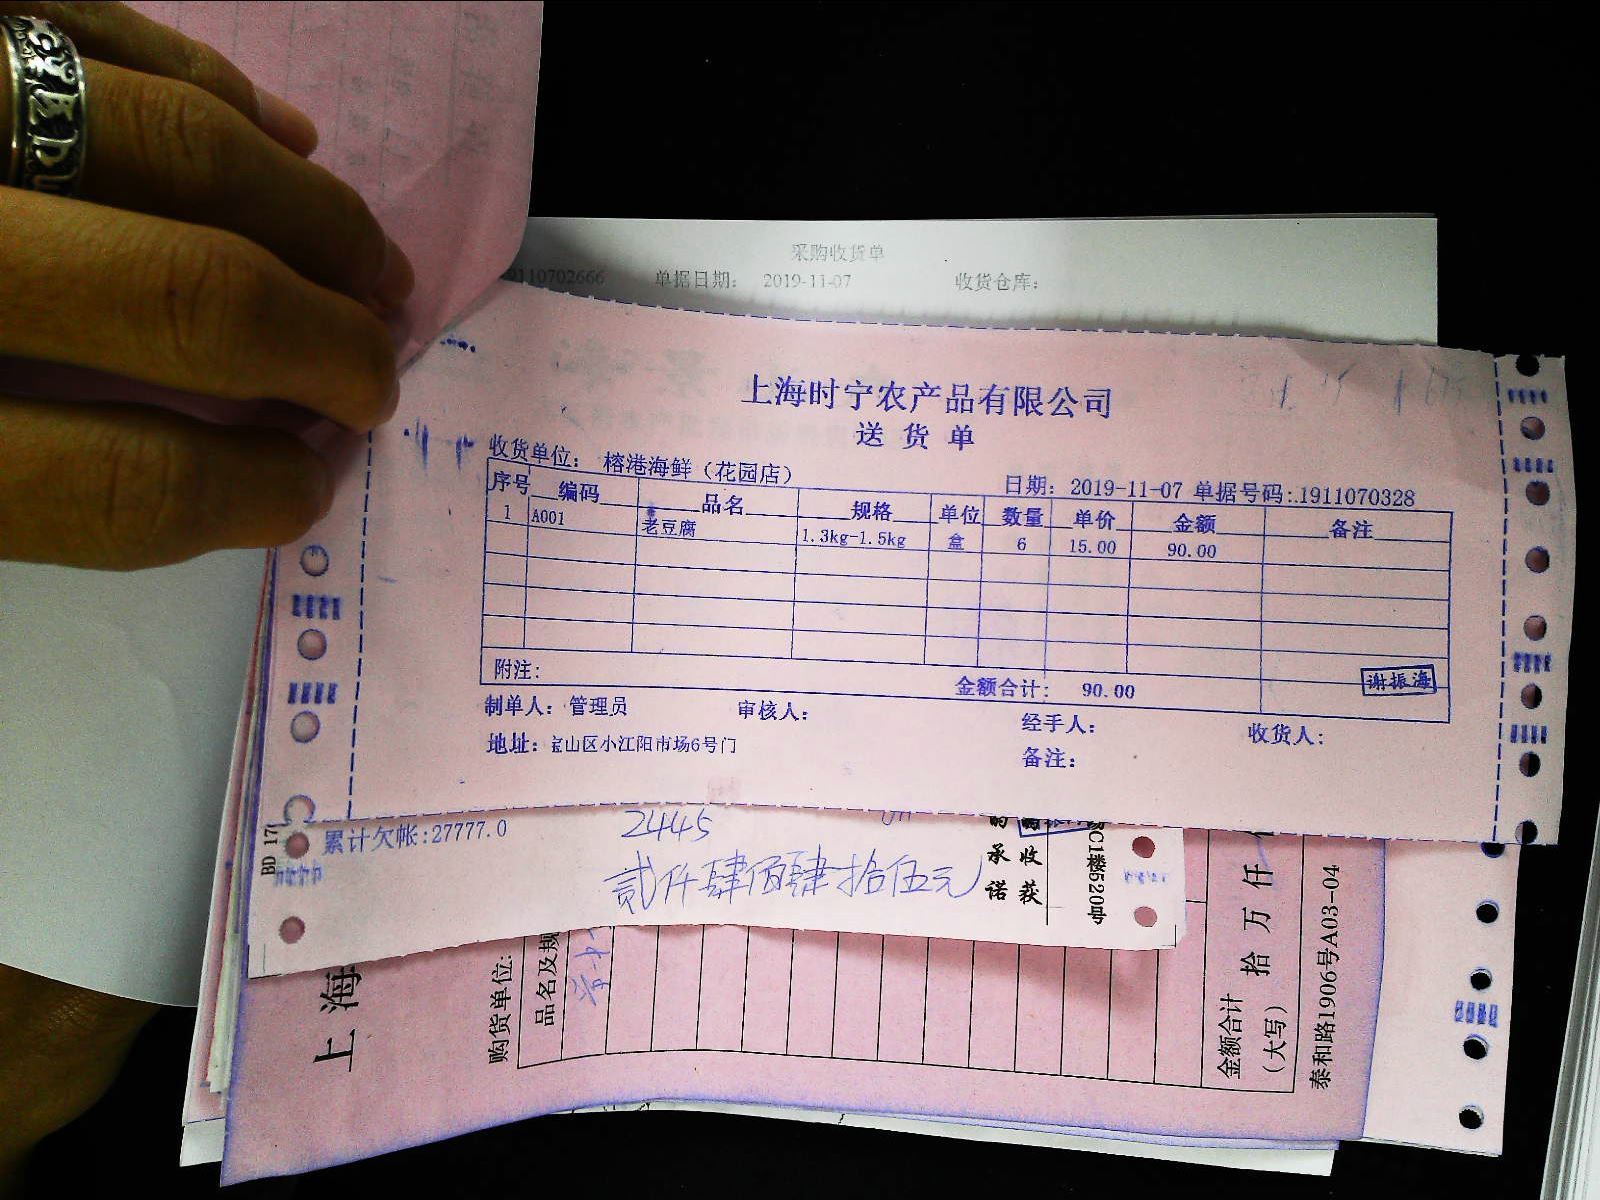 采购收货单
9110702666 单据日期： 2019-11-07 收货仓库：
上海时宁农产品有限公司
送 货 单
收货单位： 榕港海鲜（花园店）
日期： 2019-11-07 单据号码:.1911070328
序号 编码 品名 规格 单位 数量 单价 金额 备注
1 A001 老豆腐 1.3kg-1.5kg 盒 6 15.00 90.00
附注:
金额合计: 90.00
谢振海
制单人: 管理员 审核人: 经手人: 收货人:
地址: 宝山区小江阳市场6号门
备注:
累计欠帐:27777.0
2445
贰仟肆佰肆拾伍元
承诺
收获
C1楼520号
BD 17
上海
购货单位:
品名及规
金额合计
（大写）
拾 万 仟
泰和路1906号A03-04